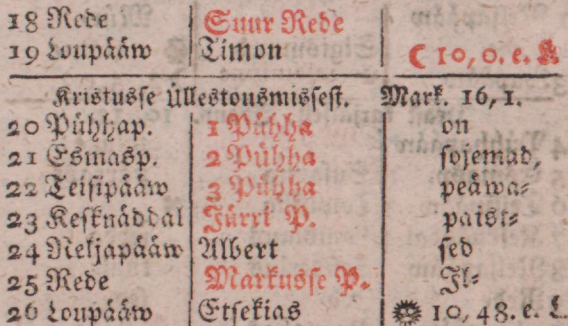 18 Rede Suur Rede
19 Loupääw Timon ☾ 10, 0. e. L.
Kristusse Üllestousmissest. Mark. 16, 1.
20 Pühhap. 1 Pühha on
21 Esmasp. 2 Pühha sojemad,
22 Teisipääw 3 Pühha peäwa-
23 Kesknäddal Jürri P. paist-
24 Neljapääw Albert sed
25 Rede Markusse P. Il-
26 Loupääw Etsekias 10, 48. e. L.